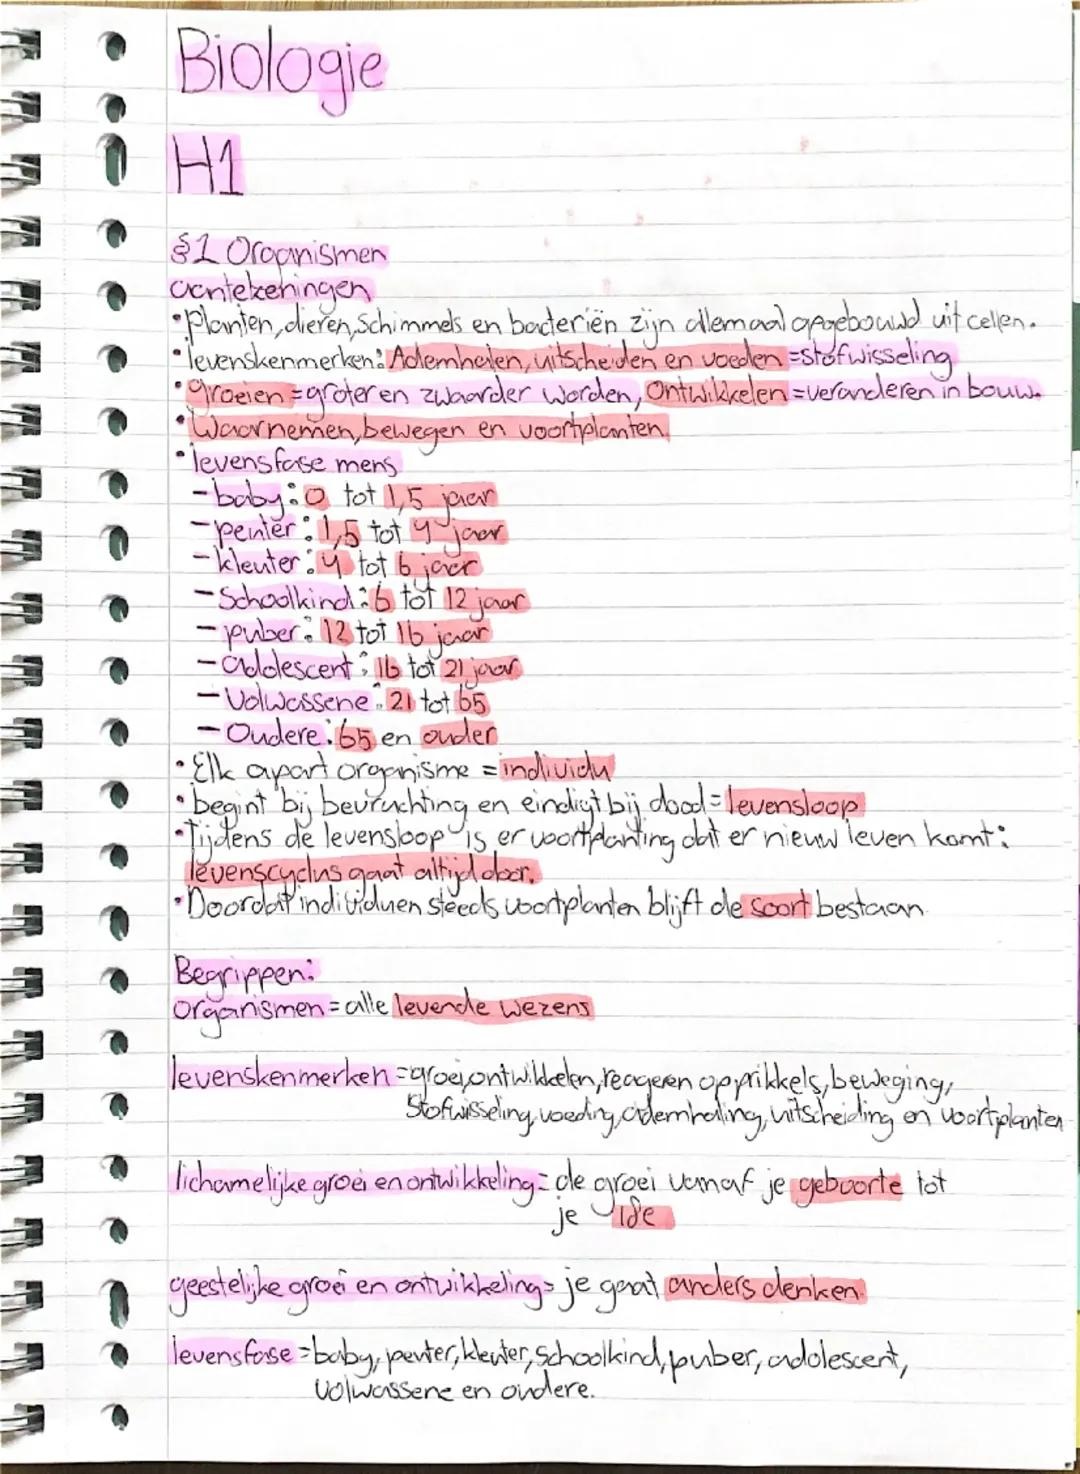 Biologie
H1
§1 Organismen
aantekeningen
• Planten, dieren, Schimmels en bacteriën zijn allemaal opgebouwd uit cellen.
• levenskenmerken: Ademhalen, uitscheiden en voeden = stofwisseling
• groeien = groter en zwaarder worden, Ontwikkelen = veranderen in bouw.
• Waarnemen, bewegen en voortplanten
• levensfase mens
- baby: 0 tot 1,5 jaar
- peuter: 1,5 tot 4 jaar
- kleuter: 4 tot 6 jaar
- Schoolkind: 6 tot 12 jaar
- puber: 12 tot 16 jaar
- adolescent: 16 tot 21 jaar
- Volwassene: 21 tot 65
- Oudere: 65 en ouder
• Elk apart organisme = individu
• begint bij bevruchting en eindigt bij dood = levensloop
• Tijdens de levensloop is er voortplanting dat er nieuw leven komt:
levenscyclus gaat altijd door.
• Doordat individuen steeds voortplanten blijft de soort bestaan
Begrippen:
organismen = alle levende wezens
levenskenmerken = groei, ontwikkelen, reageren op prikkels, beweging,
Stofwisseling, voeding, ademhaling, uitscheiding en voortplanten
lichamelijke groei en ontwikkeling = de groei vanaf je geboorte tot
je 18e
geestelijke groei en ontwikkeling = je gaat anders denken.
levensfase = baby, peuter, kleuter, schoolkind, puber, adolescent,
Volwassene en oudere.